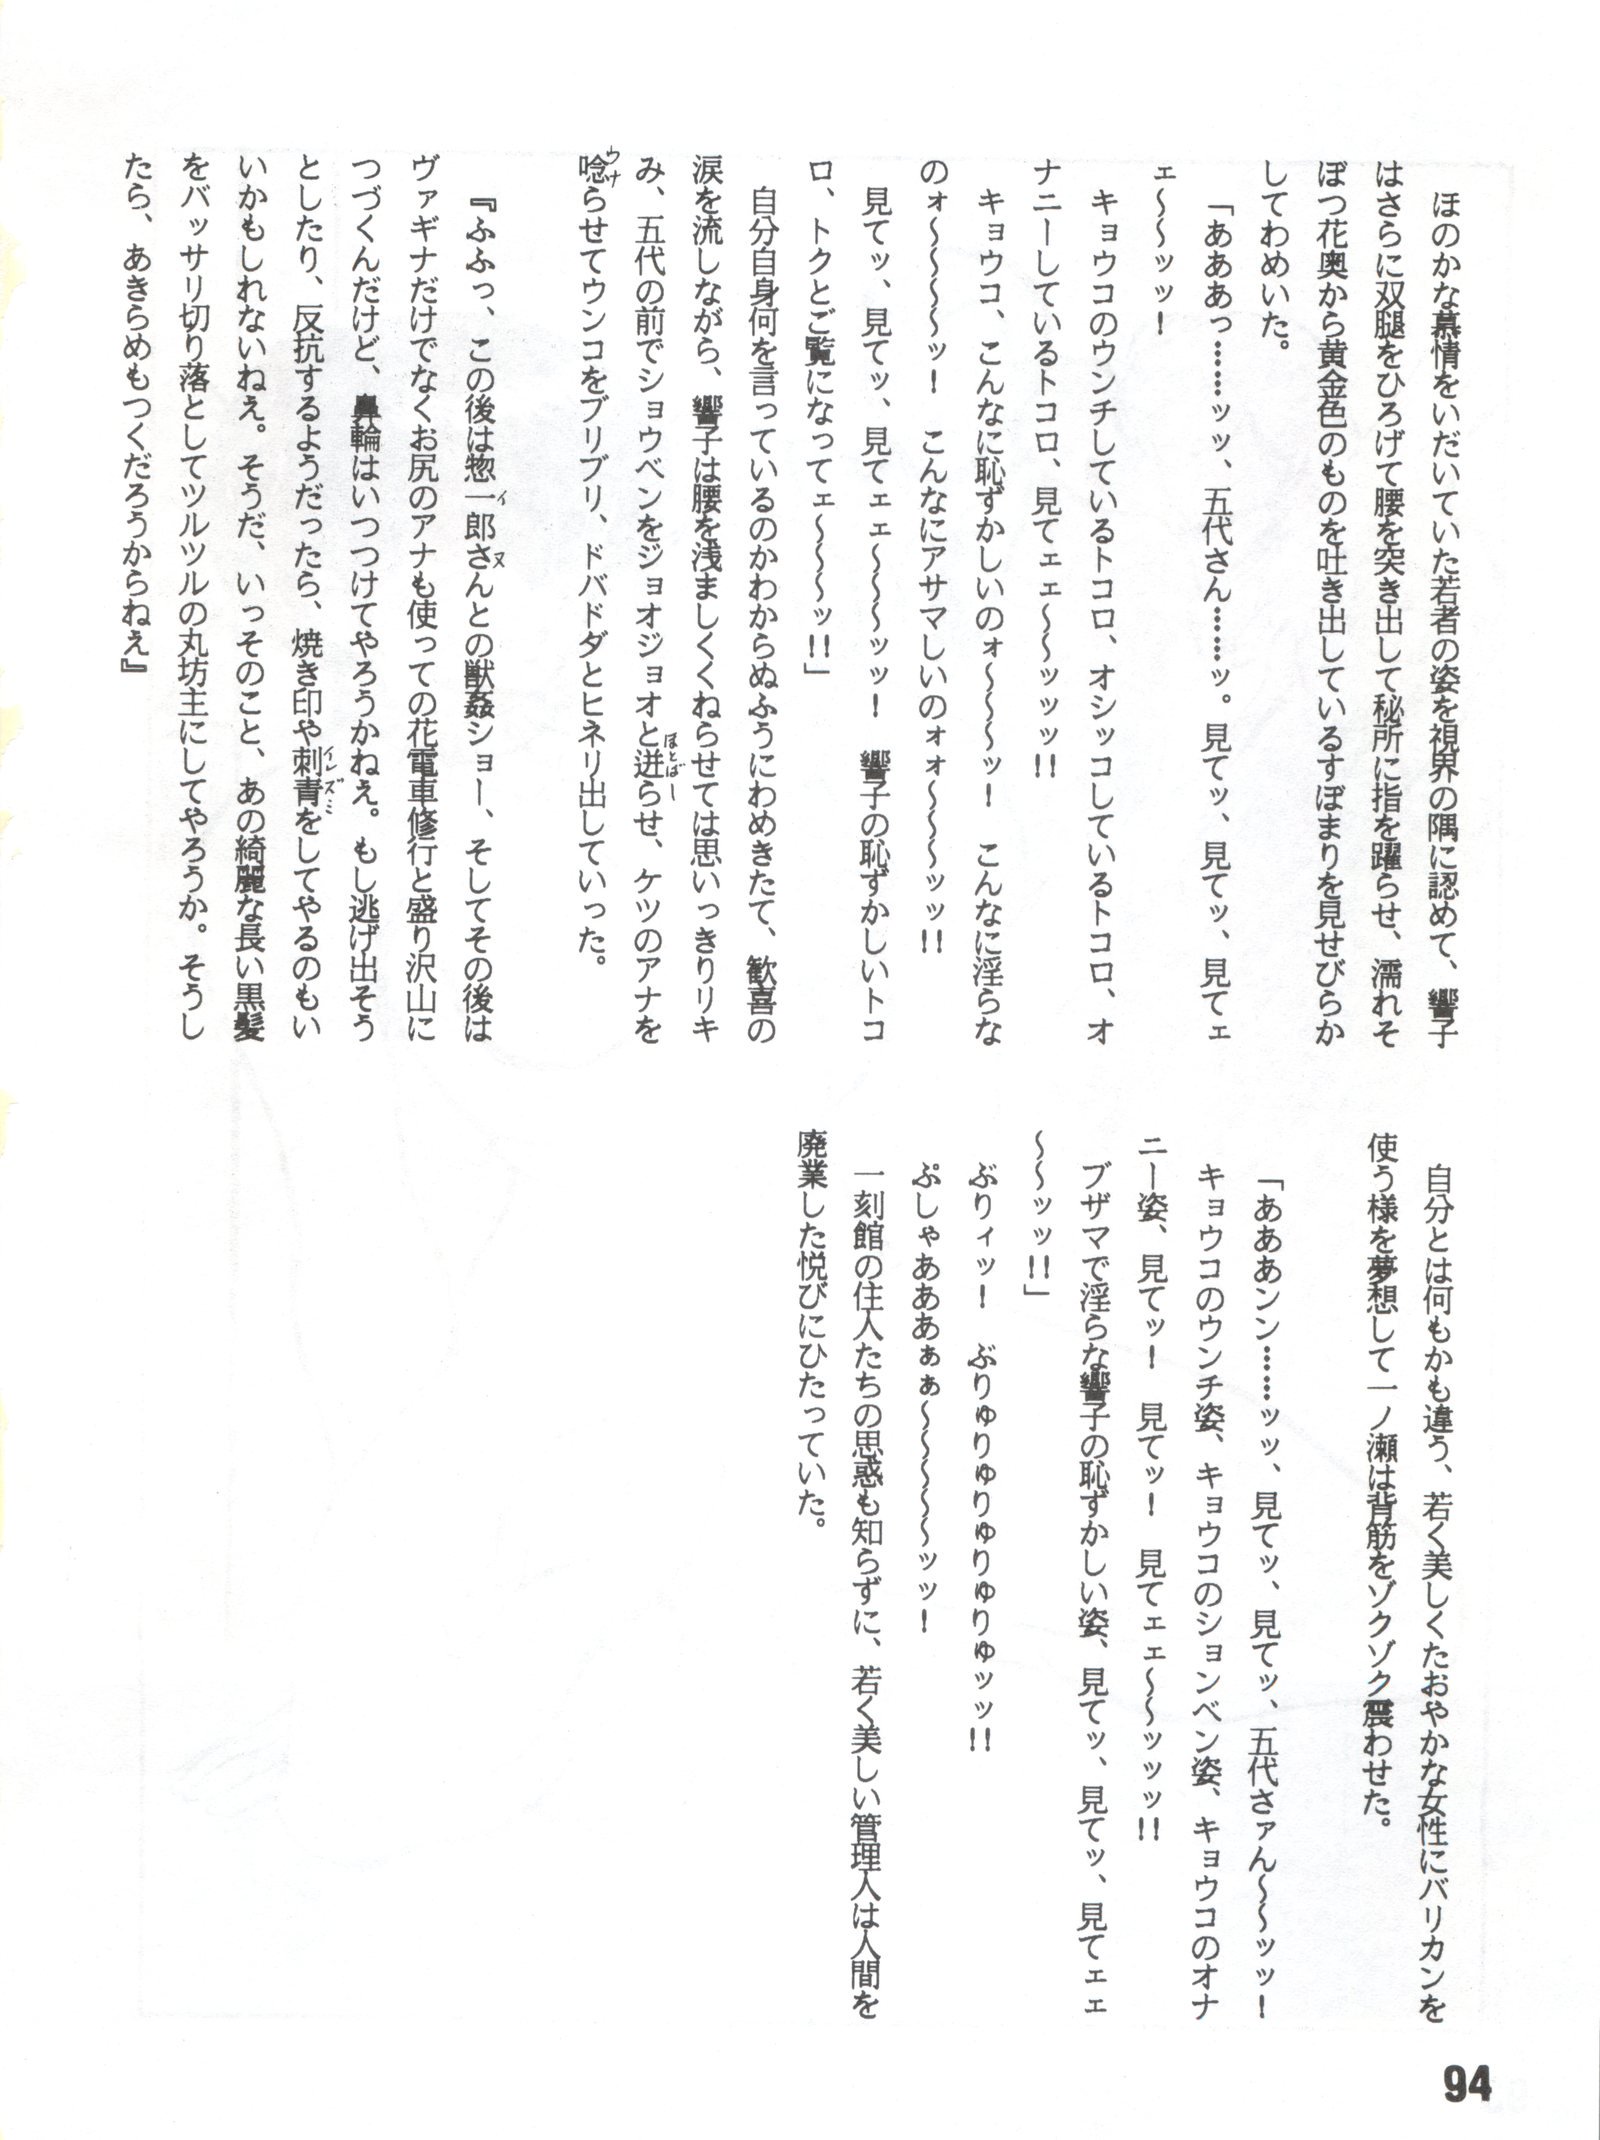 ほのかな慕情をいだいていた若者の姿を視界の隅に認めて、響子
はさらに双腿をひろげて腰を突き出して秘所に指を躍らせ、濡れそ
ぼつ花奥から黄金色のものを吐き出しているすぼまりを見せびらか
してわめいた。
「あああっ……ッッ、五代さん……ッ。見てッ、見てッ、見てェ
ェ～～ッッ！
キョウコのウンチしているトコロ、オシッコしているトコロ、オ
ナニーしているトコロ、見てェェ～～ッッッ!!
キョウコ、こんなに恥ずかしいのォ～～～ッ！　こんなに淫らな
のォ～～～～ッ！　こんなにアサマしいのォォ～～～ッッ!!
見てッ、見てッ、見てェェ～～～ッッ！　響子の恥ずかしいトコ
ロ、トクとご覧になってェ～～～～ッ!!」
自分自身何を言っているのかわからぬふうにわめきたて、歓喜の
涙を流しながら、響子は腰を浅ましくくねらせては思いっきりリキ
み、五代の前でショウベンをジョオジョオと迸らせ、ケツのアナを
唸らせてウンコをブリブリ、ドバドダとヒネリ出していった。
『ふふっ、この後は惣一郎さんとの獣姦ショー、そしてその後は
ヴァギナだけでなくお尻のアナも使っての花電車修行と盛り沢山に
つづくんだけど、鼻輪はいつつけてやろうかねえ。もし逃げ出そう
としたり、反抗するようだったら、焼き印や刺青をしてやるのもい
いかもしれないねぇ。そうだ、いっそのこと、あの綺麗な長い黒髪
をバッサリ切り落としてツルツルの丸坊主にしてやろうか。そうし
たら、あきらめもつくだろうからねぇ』
自分とは何もかも違う、若く美しくたおやかな女性にバリカンを
使う様を夢想して一ノ瀬は背筋をゾクゾク震わせた。
「あああンン……ッッ、見てッ、見てッ、五代さァん～～ッッ！
キョウコのウンチ姿、キョウコのションベン姿、キョウコのオナ
ニー姿、見てッ！　見てッ！　見てェェ～～ッッッ!!
ブザマで淫らな響子の恥ずかしい姿、見てッ、見てッ、見てェェ
～～ッッ!!」
ぶりィッ！　ぶりゅりゅりゅりゅりゅッッ!!
ぷしゃあああぁぁ～～～～～ッッ！
一刻館の住人たちの思惑も知らずに、若く美しい管理人は人間を
廃業した悦びにひたっていた。
94